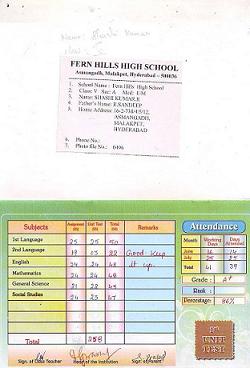 Name:
FERN HILLS HIGH SCHOOL
Asmangadh, Malakpet, Hyderabad - 500036
1. School Name : Fern Hills High School
2. Class V Sec: A Med E/M
3. Name: SHASHI KUMAR.R
4. Father's Name: R.SANDEEP
5. Home Address: 16-2-738/4/5/12,
ASMANGADH,
MALAKPET,
HYDERABAD
6. Phone No.:
7. Photo file No.: 0496
Subjects Assignment (5) Unit Test (25) Total (50) Remarks
1st Language 25 25 50
2nd Language 19 03 22 Good keep
English 24 24 48 it up.
Mathematics 24 24 48
General Science 21 22 43
Social Studies 24 23 47
Total 258
Sign. of Class Teacher Head of the Institution Sign. of Parent
Attendance
Month Working Days Days Attended
June 16 14
July 25 25
Total 41 39
Grade : A+
Rank :
Percentage : 86%
Ist
UNIT
TEST